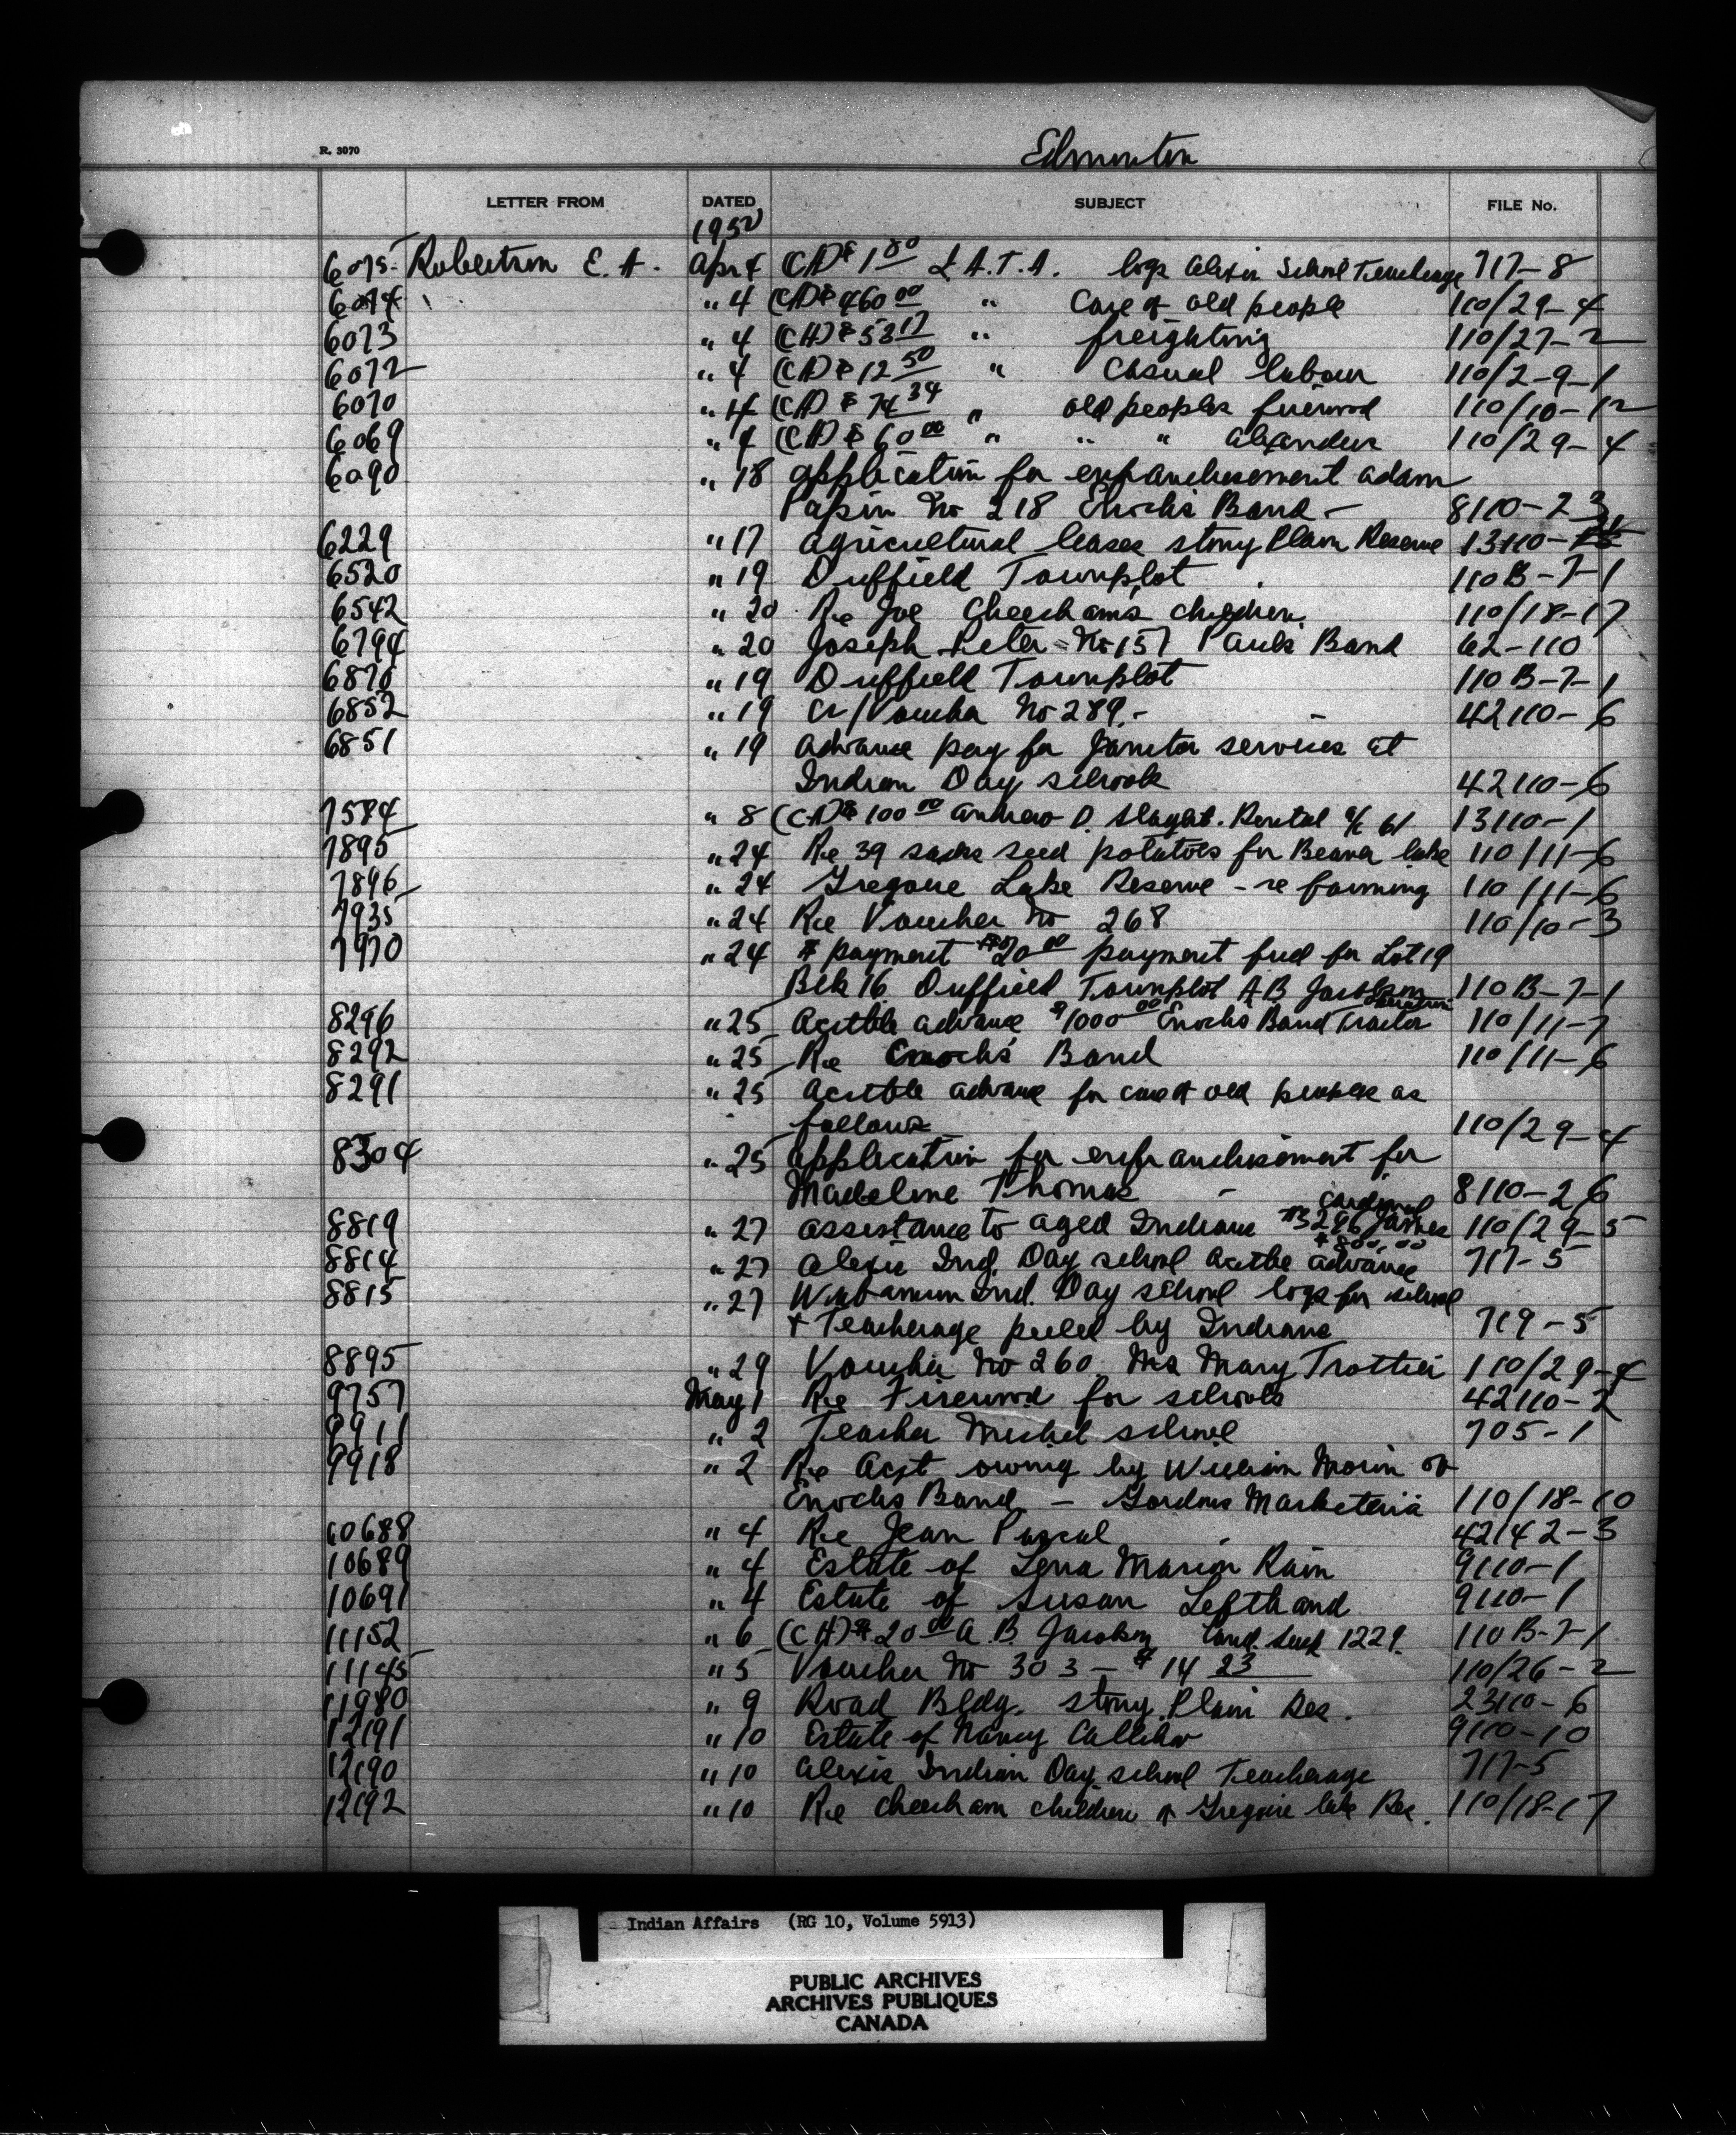 R. 3070
Edmonton
LETTER FROM DATED SUBJECT FILE No.
1950
6075 Robertson E. A. Apr 4 (CH) $1 80 L.A.T.A. logs Alexis School Teacherage 717-8
6074 " 4 (CH) $460 00 " Care of old people 110/29-4
6073 " 4 (CH) $58 17 " freighting 110/27-2
6072 " 4 (CH) $12 50 " Casual labour 110/2-9-1
6070 " 4 (CH) $74 34 " old peoples firewood 110/10-12
6069 " 4 (CH) $60 00 " " " Alexander 110/29-4
6090 " 18 application for enfranchisement Adam
Papin No 218 Enochs Band - 8110-23
6229 " 17 agricultural leases Stony Plain Reserve 13110-
6520 " 19 Duffield Townplot 110B-7-1
6542 " 20 Re Joe Cheechams children 110/18-17
6794 " 20 Joseph Peter - No 157 Pauls Band 62-110
6870 " 19 Duffield Townplot 110B-7-1
6852 " 19 Cr/Voucher No 289.- - 42110-6
6851 " 19 advance pay for Janitor services at
Indian Day schools 42110-6
7584 " 8 (CH) $100 00 Andrew D. Rental a/c 61 13110-1
7895 " 24 Re 39 sacks seed potatoes for Beaver lake 110/11-6
7896 " 24 Gregoire Lake Reserve - re farming 110/11-6
7935 " 24 Re Voucher No 268 110/10-3
7970 " 24 payment $20 00 payment fued for Lot 19
Blk 16 Duffield Townplot A B Jacobson 110B-7-1
8296 " 25 Acctble advance $1000 00 Enochs Band Tractor 110/11-7
8292 " 25 Re Enochs Band 110/11-6
8291 " 25 Acctble advance for care of old people as
follows 110/29-4
8304 " 25 application for enfranchisement for
Madeline Thomas - 8110-26
8819 " 27 assistance to aged Indians #3286 James Cardinal 110/29-5
8814 " 27 Alexis Ind. Day school Acctble advance $800.00 717-5
8815 " 27 Wabamun Ind. Day school logs for school
+ Teacherage peeled by Indians 719-5
8895 " 29 Voucher No 260 Mrs Mary Trottier 110/29-4
9757 May 1 Re Firewood for schools 42110-2
9911 " 2 Teacher Michel school 705-1
9918 " 2 Re Acct owing by William Morin of
Enochs Band - Gordons Marketeria 110/18-10
10688 " 4 Re Jean Pascal 42142-3
10689 " 4 Estate of Lena Marion Rain 9110-1
10691 " 4 Estate of Susan Lefthand 9110-1
11152 " 6 (CH) $20 00 A. B. Jacobson Land Suск 1229 110B-7-1
11145 " 5 Voucher No 303 - $14 23 110/26-2
11980 " 9 Road Bldg. Stony Plain Res. 23110-6
12191 " 10 Estate of Nancy Callihoo 9110-10
12190 " 10 Alexis Indian Day school Teacherage 717-5
12192 " 10 Re Cheecham children of Gregoire lake Res. 110/18-17
Indian Affairs (RG 10, Volume 5913)
PUBLIC ARCHIVES
ARCHIVES PUBLIQUES
CANADA